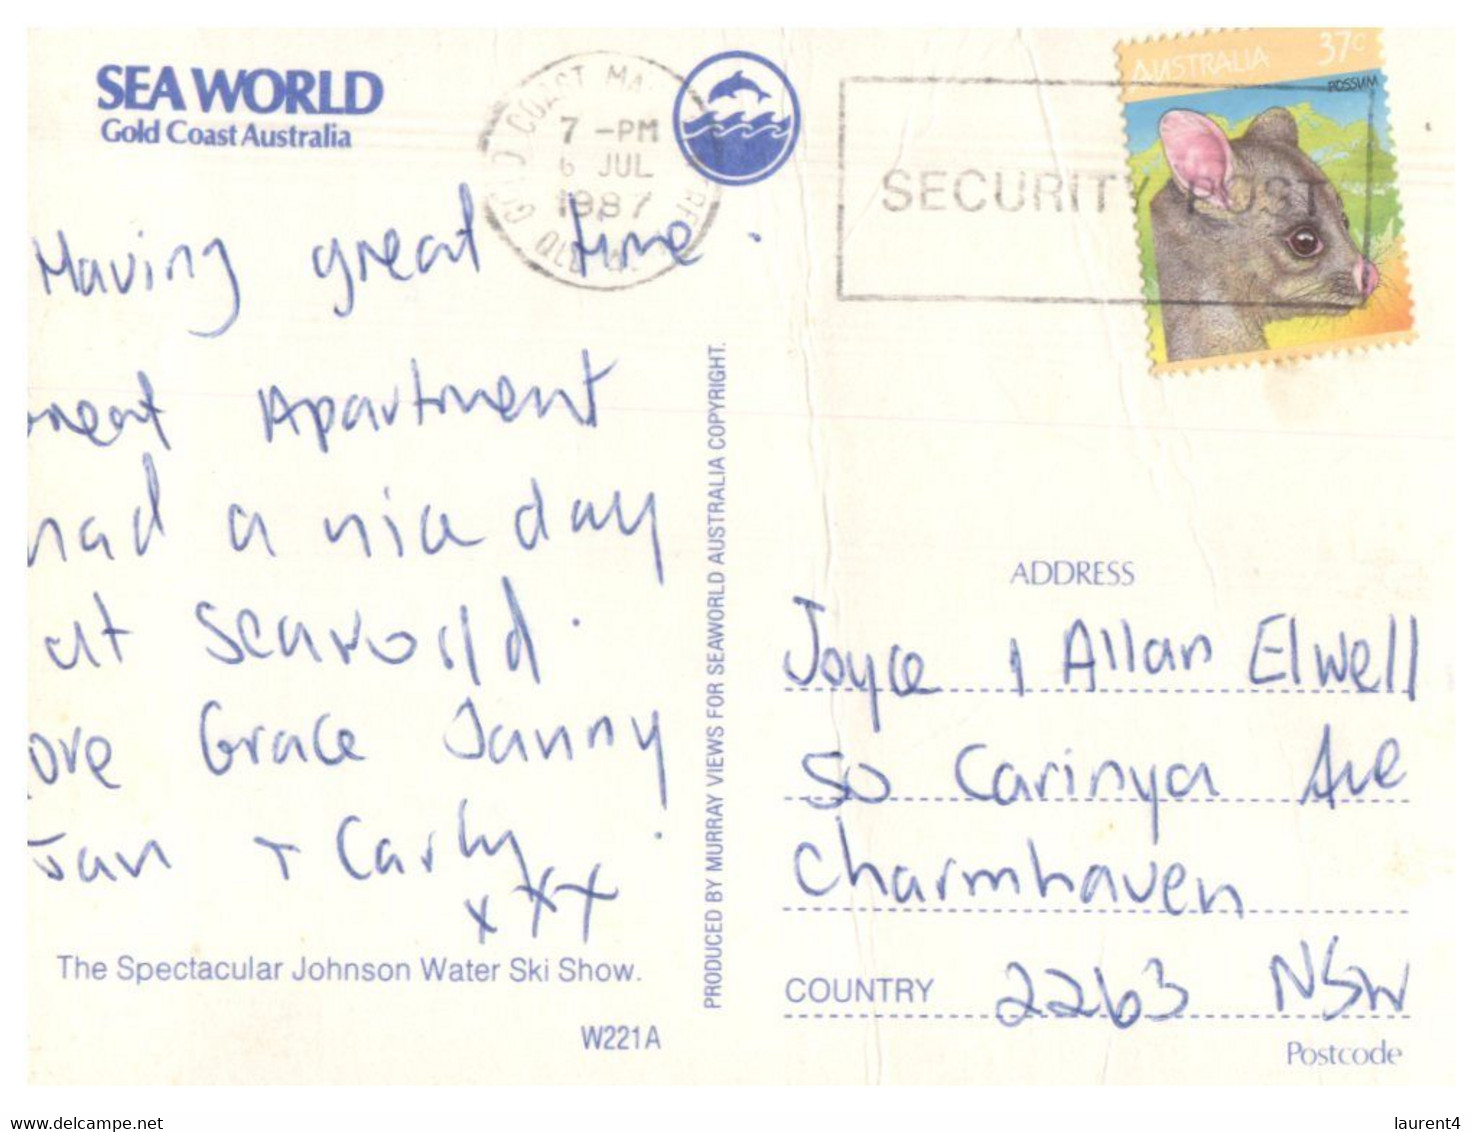 SEA WORLD
Gold Coast Australia
7 -PM
6 JUL
1987
SECURITY POST
AUSTRALIA 37c
POSSUM
Having great time.
Apartment
had a nice day
at Seaworld.
ove Grace Janny
Jan + Carly
xxx
The Spectacular Johnson Water Ski Show.
W221A
PRODUCED BY MURRAY VIEWS FOR SEAWORLD AUSTRALIA COPYRIGHT.
ADDRESS
Joyce & Allan Elwell
50 Carinya Ave
Charmhaven
COUNTRY 2263 NSW
Postcode
laurent4